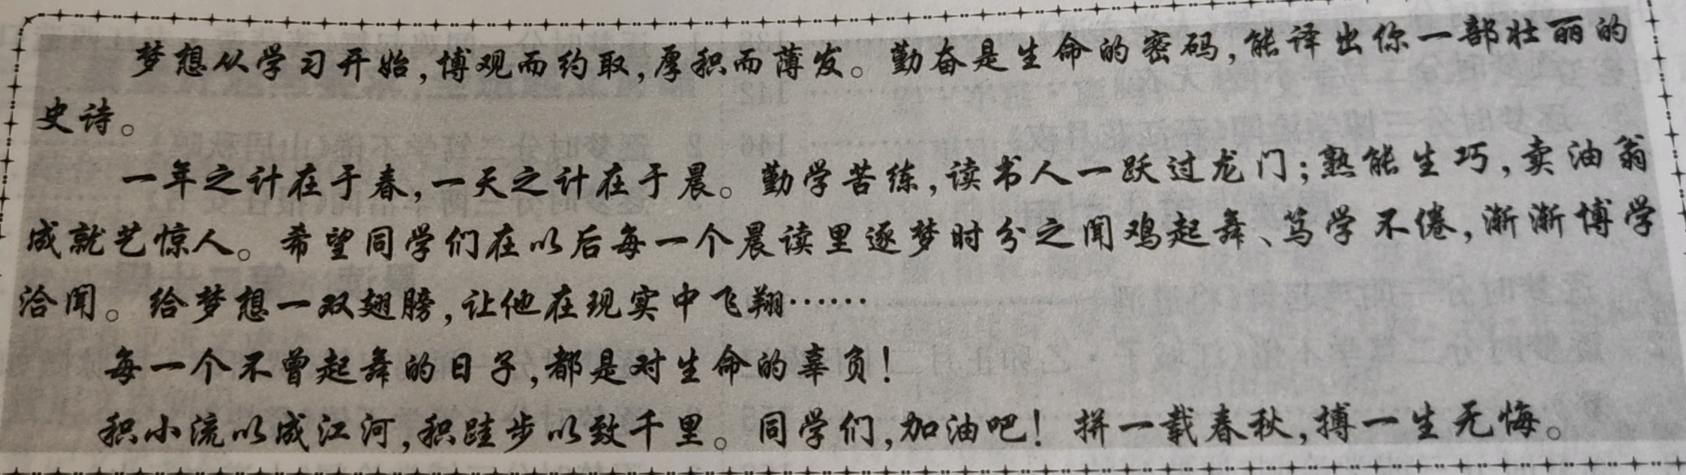 梦想从学习开始,博观而约取,厚积而薄发。勤奋是生命的密码,能译出你一部壮丽的
史诗。
一年之计在于春,一天之计在于晨。勤学苦练,读书人一跃过龙门;熟能生巧,卖油翁
成就艺惊人。希望同学们在以后每一个晨读里逐梦时分之闻鸡起舞、笃学不倦,渐渐博学
洽闻。给梦想一双翅膀,让他在现实中飞翔……
每一个不曾起舞的日子,都是对生命的辜负!
积小流以成江河,积跬步以致千里。同学们,加油吧!拼一载春秋,搏一生无悔。